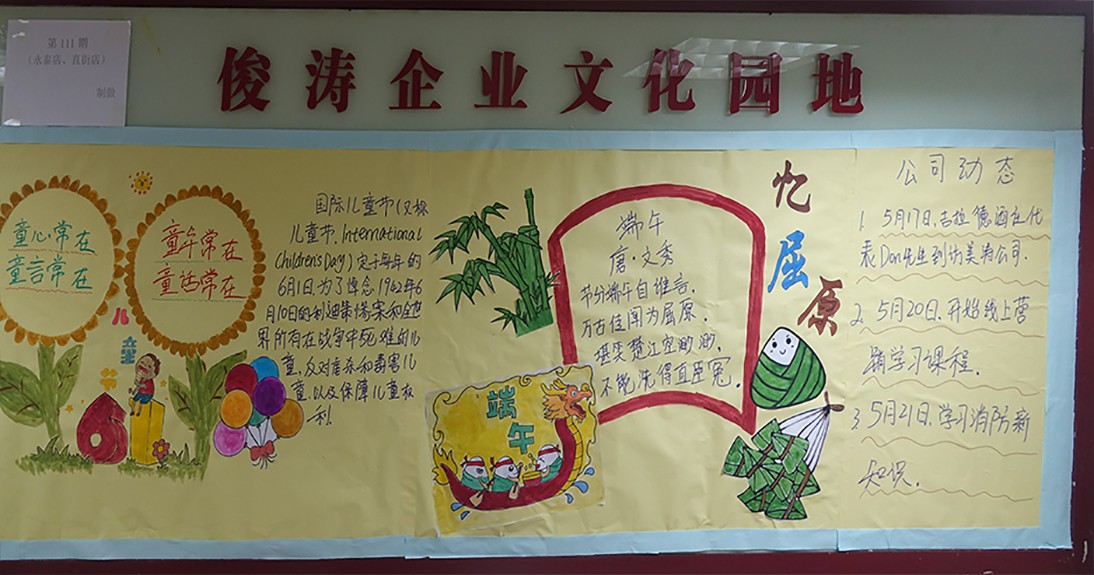 第111期
（永泰店、直街店）
制做
俊涛企业文化园地
童心常在
童言常在
童年常在
童话常在
儿
童
节
6 1
国际儿童节(又称
儿童节、International
Children's Day）定于每年的
6月1日。为了悼念1942年6
月10日的利迪策惨案和全世
界所有在战争中死难的儿
童，反对虐杀和毒害儿
童，以及保障儿童权
利.
端午
端午
唐·文秀
节分端午自谁言，
万古传闻为屈原，
堪笑楚江空渺渺，
不能洗得直臣冤。
忆
屈
原
公司动态
1. 5月17日,吉拉德酒庄代
表Dan先生到访美涛公司.
2. 5月20日,开始线上营
销学习课程.
3. 5月21日,学习消防新
知识.